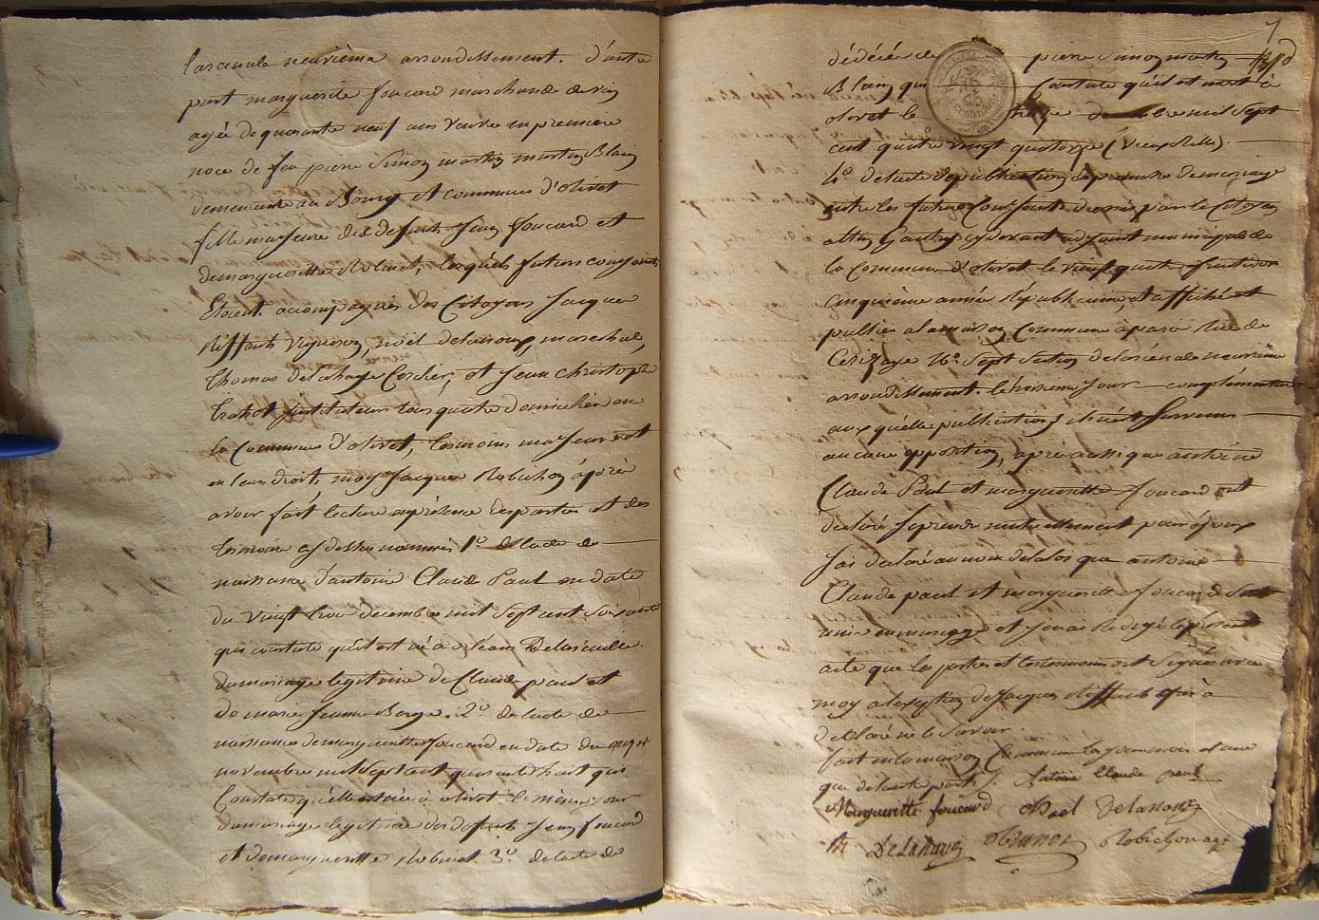 l'arcenale neuvième arrondissement. d'autre
part marguerite foucard marchande de vin
agée de quarante neuf ans veuve en premiere
noce de feu pierre Simon martin Blain
demeurante au Bourg et commune d'olivet
fille majeure des defunts Jean foucard et
de marguerite Robinet, lesquels futurs conjoints
Etoient accompagnés des Citoyens Jacque
Riffault vigneron, noël delanoue, marechal,
thomas delahaye Cocher, et Jean christophe
instituteur tous quatre domiciliés en
la Commune d'olivet, temoins majeurs et
en leurs droits, moy Jacques Robichon après
avoir fait lecture en présence des parties et des
temoins cy dessus nommés 1º de l'acte de
naissance d'antoine Claude Paul en date
du vingt trois decembre mil sept cent soixante
qui constate qu'il est né à
du mariage legitime de Claude paul et
de marie Jeanne 2º de l'acte de
naissance de marguerite foucard en date du onze
novembre mil sept cent quarante huit qui
Constate qu'elle est née à olivet le même jour
du mariage legitime des defunts Jean foucard
et de marguerite Robinet. 3º de l'acte de
7
décès de pierre Simon martin
Blain qui Constate qu'il est mort à
olivet le mil sept
cent quatre vingt quatorze (vieux stille)
4º de l'acte de publication de promesse de mariage
entre les futurs Conjoints dressé par le Citoyen
cy devant adjoint municipal de
la Commune d'olivet le vingt quatre fructidor
cinquième année Républicaine, et affiché et
publiée a la maison Commune à paris Rue de
Cerizaye Nº Sept Section de l'arcenale neuvième
arrondissement. le troisième jour complémentaire
aux quelle publications il n'est survenu
aucune opposition, après aussi que antoine
Claude Paul et marguerite foucard ont
declaré se prendre mutuellement pour époux
J'ai declaré au nom de la loi que antoine
Claude paul et marguerite foucard sont
unis en mariage et j'en ai Redigé le présent
acte que les parties et temoins ont Signé avec
moy a l'exception de Jacques Riffault qui a
declaré ne le Savoir.
fait en la maison Commune les jour mois et an
que de l'autre part. antoine Claude paul
Margueritte foucard Noel Delanoue
Delahaye Robichon